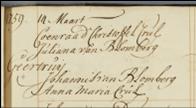 759. 14 Maart
Coenraad Christoffel Crul
Juliana van Blomberg
Geertruy
Johannis van Blomberg
Anna Maria Crul